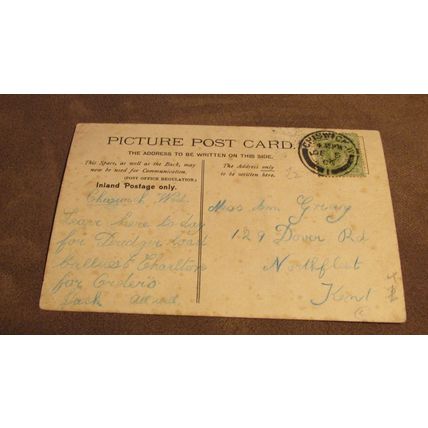 PICTURE POST CARD.
THE ADDRESS TO BE WRITTEN ON THIS SIDE.
This Space, as well as the Back, may
now be used for Communication.
(POST OFFICE REGULATION)
Inland Postage only.
The Address only
to be written here.
CHISWICK
Chiswick Wed.
here to day
for road
Charlton
for Orders
Jack
Miss Ann
129 Dover Rd
Northfleet
Kent